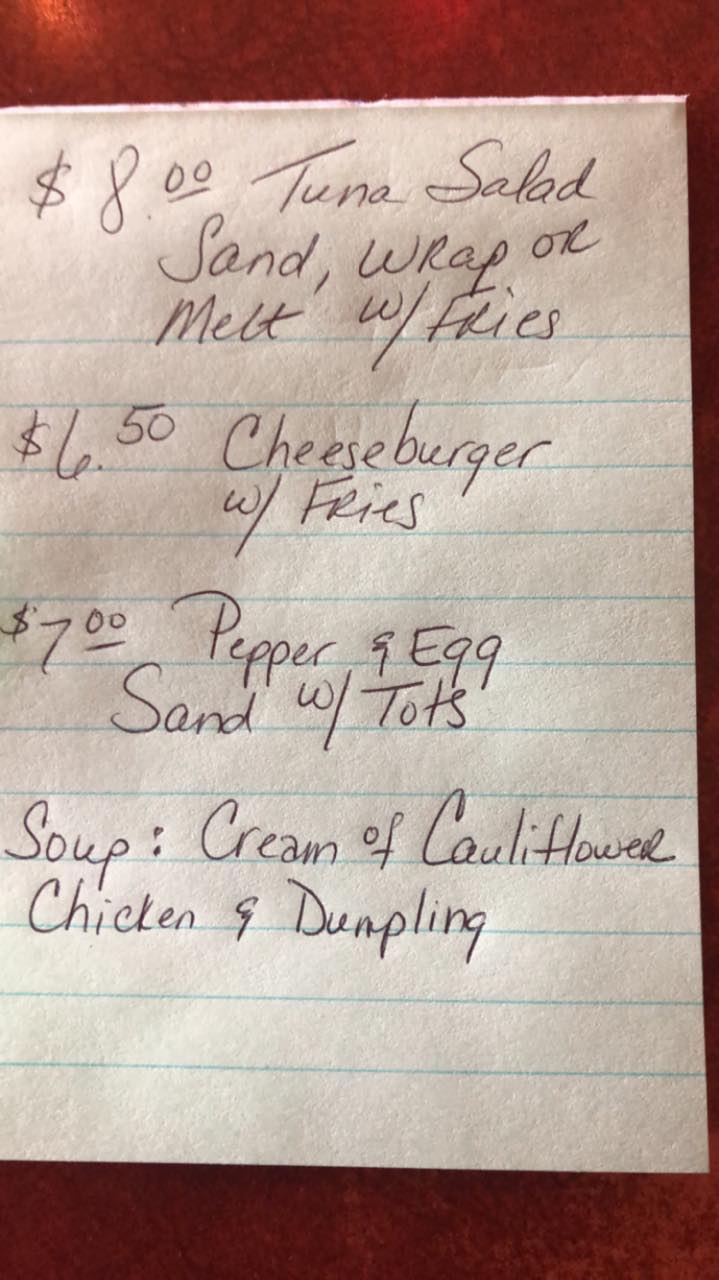 $8.00 Tuna Salad
Sand, Wrap or
Melt w/ Fries
$6.50 Cheeseburger
w/ Fries
$7.00 Pepper & Egg
Sand w/ Tots
Soup: Cream of Cauliflower
Chicken & Dumpling